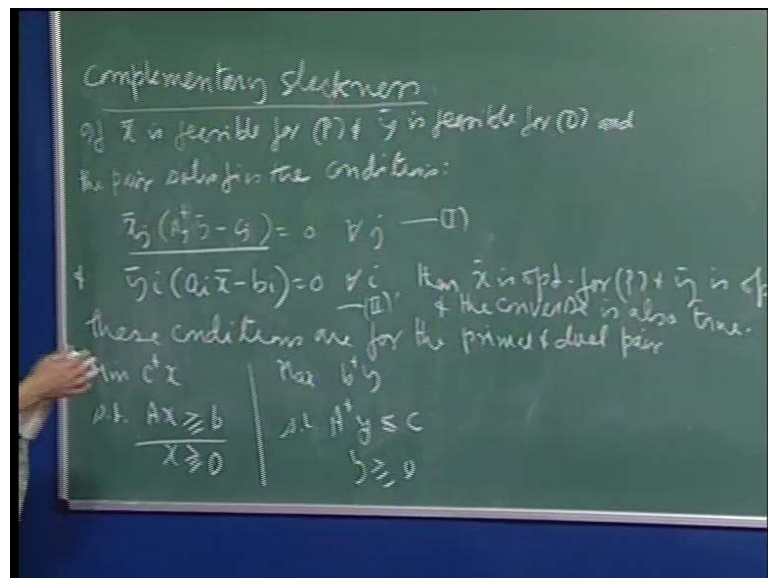 Complementary slackness
If x̄ is feasible for (P) & ȳ is feasible for (D) and
the pair satisfies the conditions:
x̄j (Ajᵗ ȳ - cj) = 0 ∀ j —(I)
& ȳi (ai x̄ - bi) = 0 ∀ i —(II). then x̄ is opt. for (P) & ȳ is op
& the converse is also true.
these conditions are for the primal & dual pair
Min cᵗx Max bᵗy
s.t. Ax ≥ b s.t. Aᵗy ≤ c
x ≥ 0 y ≥ 0